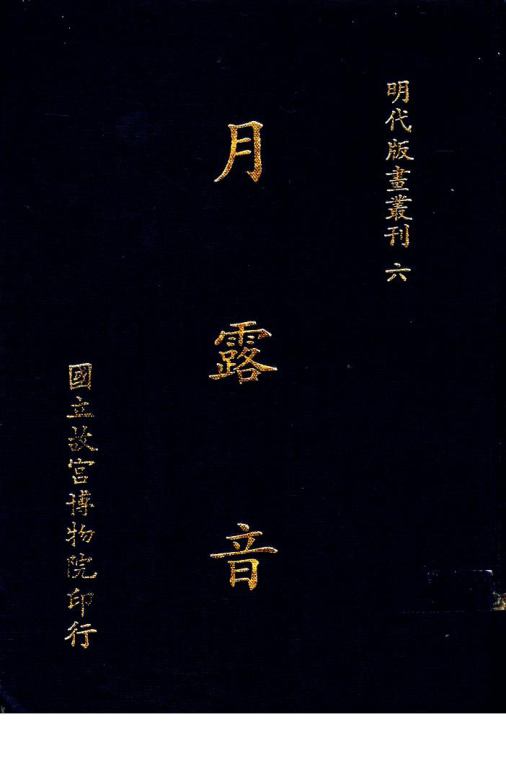 明代版畫叢刊 六
月露音
國立故宮博物院印行